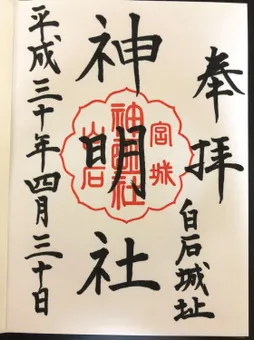 奉拝
白石城址
神明社
平成三十年四月三十日
宮城
神明社
白石